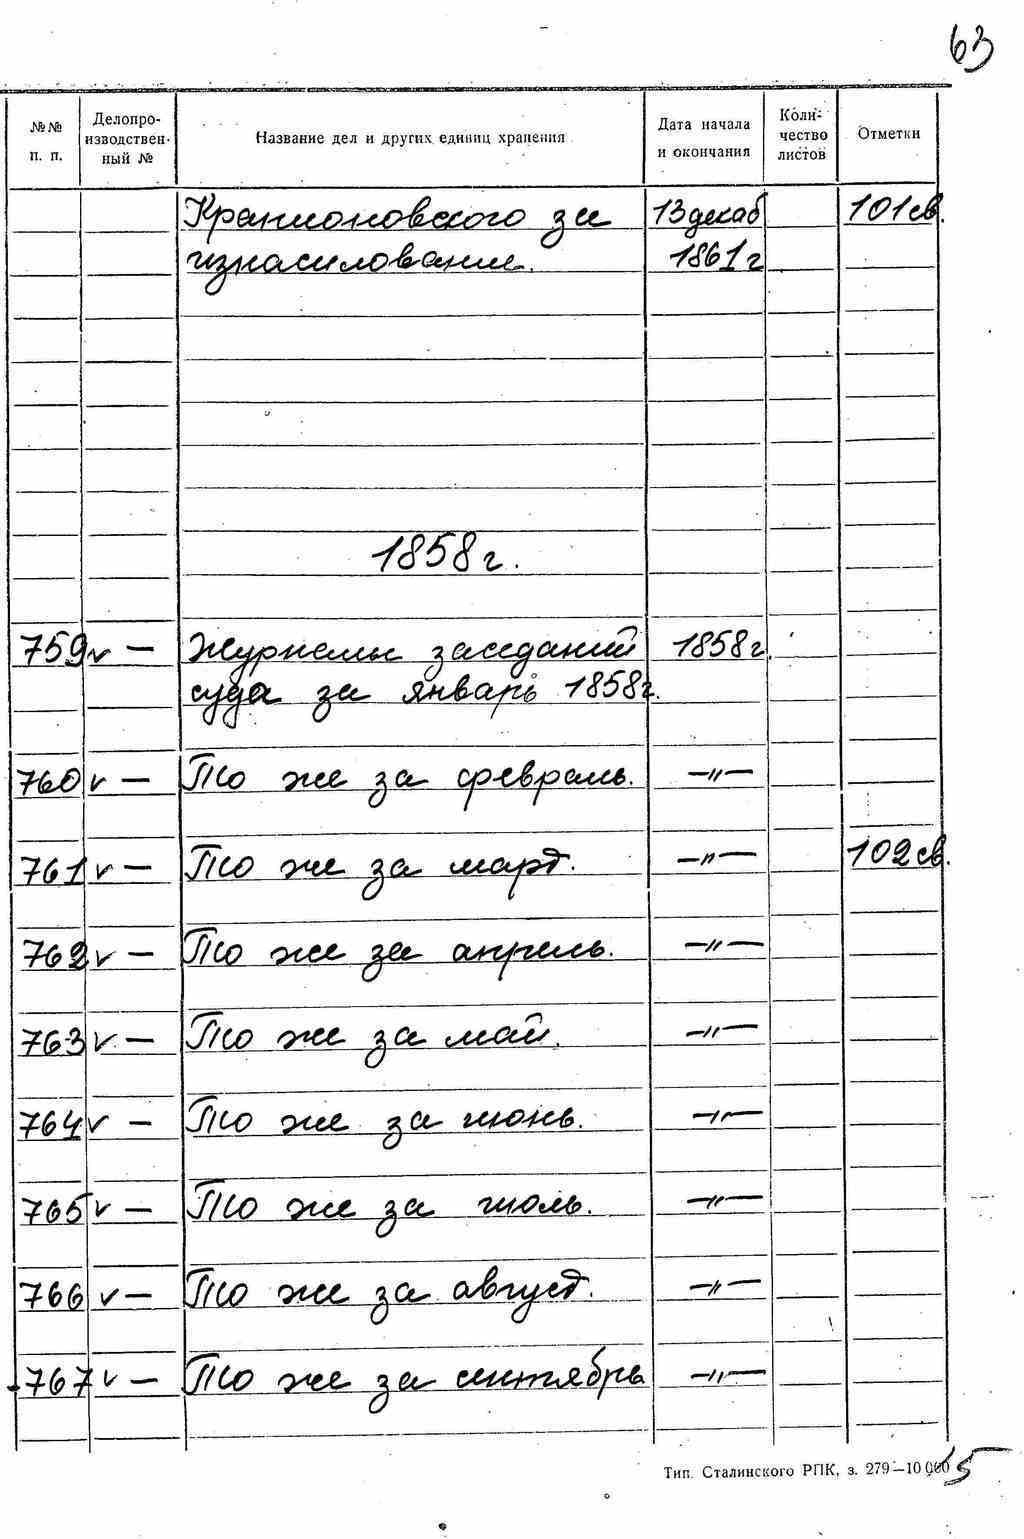 63
№№ п. п. Делопроизводственный № Название дел и других единиц хранения Дата начала и окончания Количество листов Отметки
за 13 декаб 101 св.
изнасилование. 1861 г
1858 г.
759 v — Журналы заседаний 1858 г.
суда за январь 1858 г.
760 v — То же за февраль. —"—
761 v — То же за март. —"— 102 св.
762 v — То же за апрель. —"—
763 v — То же за май. —"—
764 v — То же за июнь. —"—
765 v — То же за июль. —"—
766 v — То же за август. —"—
767 v — То же за сентябрь —"—
Тип. Сталинского РПК, з. 279—10 000